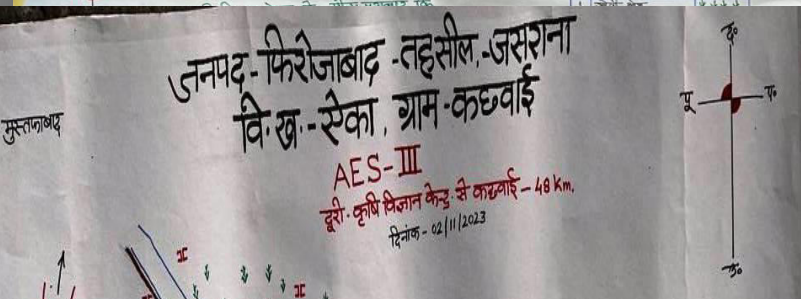 जनपद-फिरोजाबाद -तहसील,-जसराना
वि.ख.-ऐका, ग्राम-कछवाई
मुस्तफाबाद
AES-III
दूरी-कृषि विज्ञान केन्द्र से कछवाई-48 Km.
दिनांक-02/11/2023
द०
पू
प०
उ०